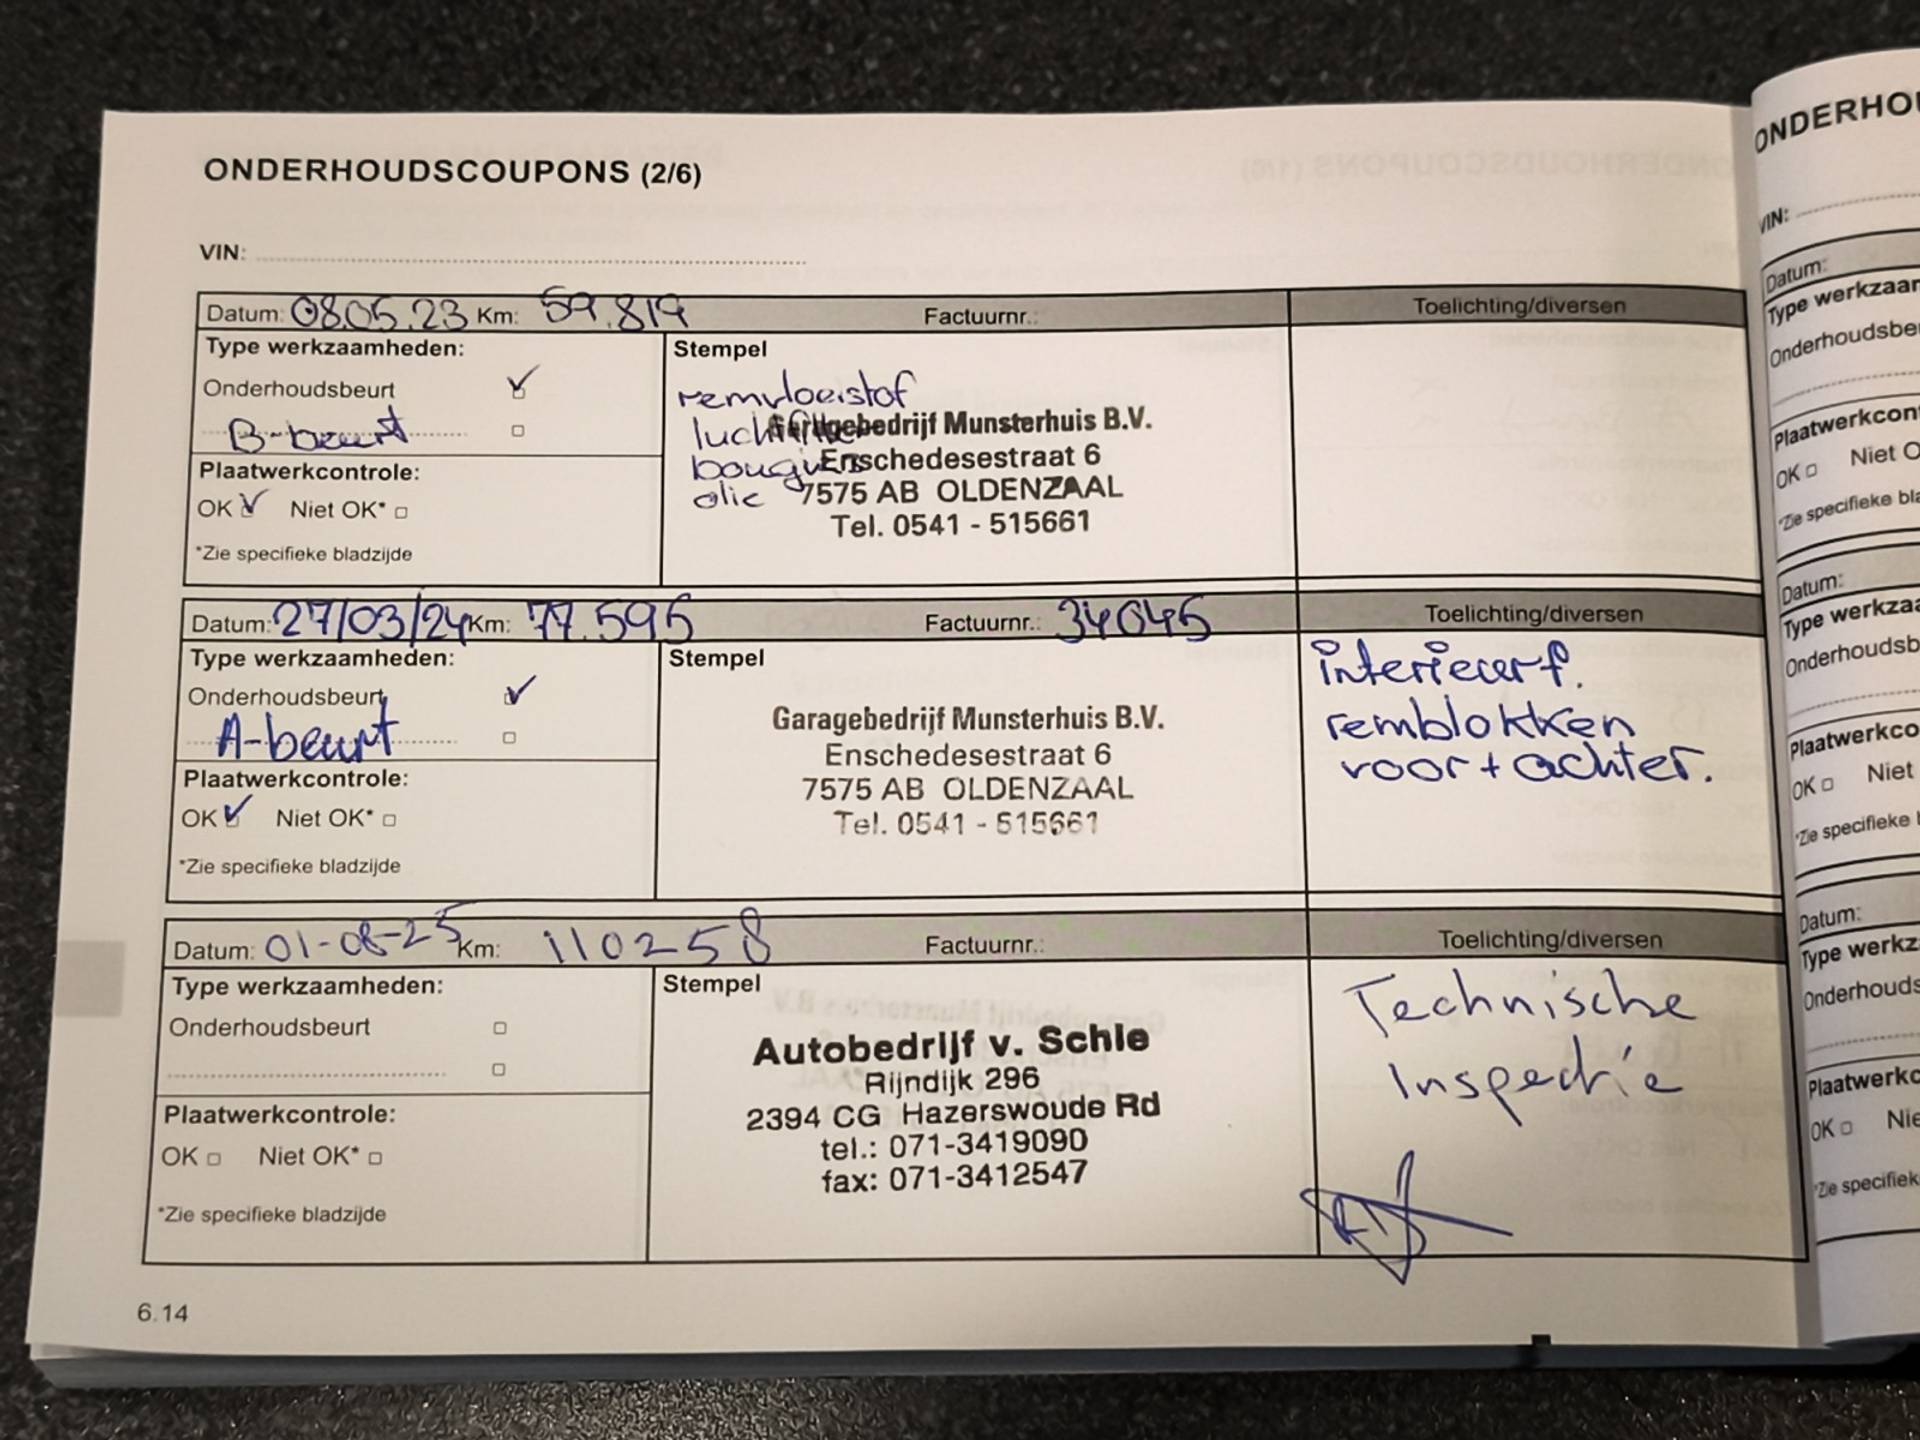 ONDERHOUDSCOUPONS (2/6)
VIN:
Datum: 08.05.23 Km: 59.819 Factuurnr.: Toelichting/diversen
Type werkzaamheden:
Onderhoudsbeurt
B-beurt
Plaatwerkcontrole:
OK Niet OK*
*Zie specifieke bladzijde
Stempel
remvloeistof
luchtfilter
bougies
olie
Garagebedrijf Munsterhuis B.V.
Enschedesestraat 6
7575 AB OLDENZAAL
Tel. 0541 - 515661
Datum: 27/03/24 Km: 77.595 Factuurnr.: 34045 Toelichting/diversen
Type werkzaamheden:
Onderhoudsbeurt
A-beurt
Plaatwerkcontrole:
OK Niet OK*
*Zie specifieke bladzijde
Stempel
Garagebedrijf Munsterhuis B.V.
Enschedesestraat 6
7575 AB OLDENZAAL
Tel. 0541 - 515661
interieurf.
remblokken
voor + achter.
Datum: 01-08-25 Km: 110258 Factuurnr.: Toelichting/diversen
Type werkzaamheden:
Onderhoudsbeurt
Plaatwerkcontrole:
OK Niet OK*
*Zie specifieke bladzijde
Stempel
Autobedrijf v. Schie
Rijndijk 296
2394 CG Hazerswoude Rd
tel.: 071-3419090
fax: 071-3412547
Technische
Inspectie
6.14
ONDERHOU
VIN:
Datum:
Type werkzaam
Onderhoudsbeu
Plaatwerkcont
OK Niet O
*Zie specifieke bla
Datum:
Type werkzaa
Onderhoudsb
Plaatwerkco
OK Niet
*Zie specifieke b
Datum:
Type werkz
Onderhouds
Plaatwerkc
OK Nie
*Zie specifiek